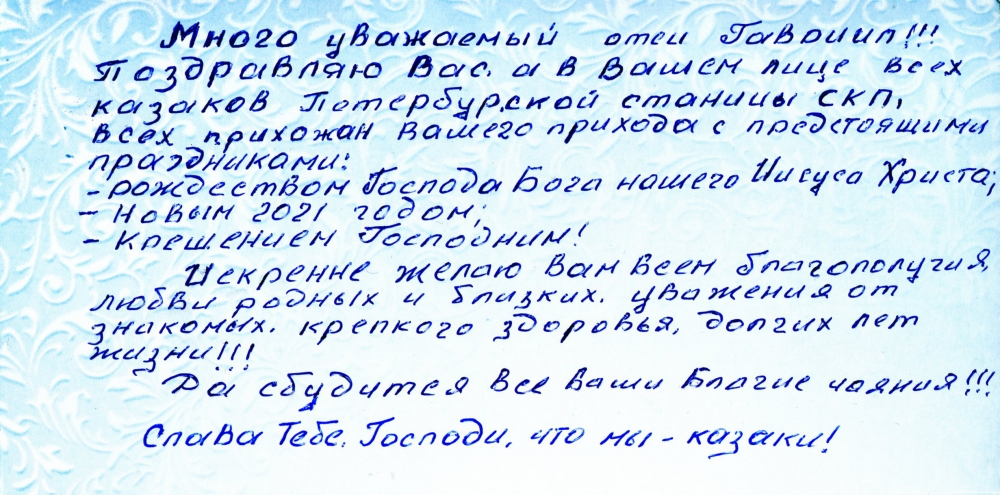 Много уважаемый отец Гавриил!!!
Поздравляю Вас, а в Вашем лице всех
казаков Петербурской станицы СКП,
всех прихожан вашего прихода с предстоящими
праздниками:
- рождеством Господа Бога нашего Иисуса Христа;
- Новым 2021 годом;
- Крещением Господним!
Искренне желаю Вам всем благополучия,
любви родных и близких, уважения от
знакомых, крепкого здоровья, долгих лет
жизни!!!
Да сбудится все Ваши Благие чаяния!!!
Слава Тебе, Господи, что мы - казаки!